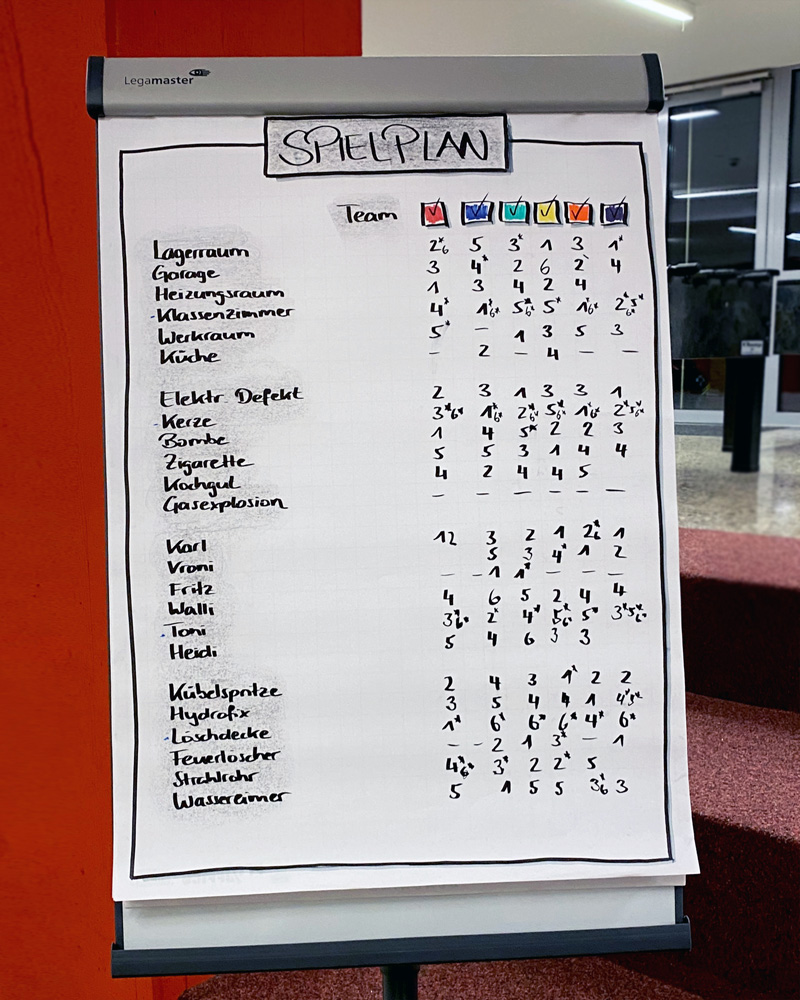 Legamaster
SPIELPLAN
Team
Lagerraum 2*6 5 3* 1 3 1*
Garage 3 4* 2 6 2 4
Heizungsraum 1 3 4 2 4
Klassenzimmer 4* 1*6* 5*6* 5* 1*6* 2*5*6*
Werkraum 5* – 1 3 5 3
Küche – 2 – 4 – –
Elektr. Defekt 2 3 1 3 3 1
Kerze 3*6* 1*6* 2*6* 5*6* 1*6* 2*5*6*
Bombe 1 4 5* 2 2 3
Zigarette 5 5 3 1 4 4
Kochgut 4 2 4 4 5
Gasexplosion – – – – – –
Karl 12 3 2 1 2*6 1
Vroni 5 3 4* 1 2
Fritz – – 1 1* – – –
Walli 4 6 5 2 4 4
Toni 3*6* 2* 4* 5*6* 5* 3*5*6*
Heidi 5 4 6 3 3
Kübelspritze 2 4 3 1* 2 2
Hydrofix 3 5 4 4 1 4*3*
Löschdecke 1* 6* 6* 6* 4* 6*
Feuerlöscher – – 2 1 3* – 1
Strahlrohr 4*6* 3* 2 2* 5
Wassereimer 5 1 5 5 3*6 3